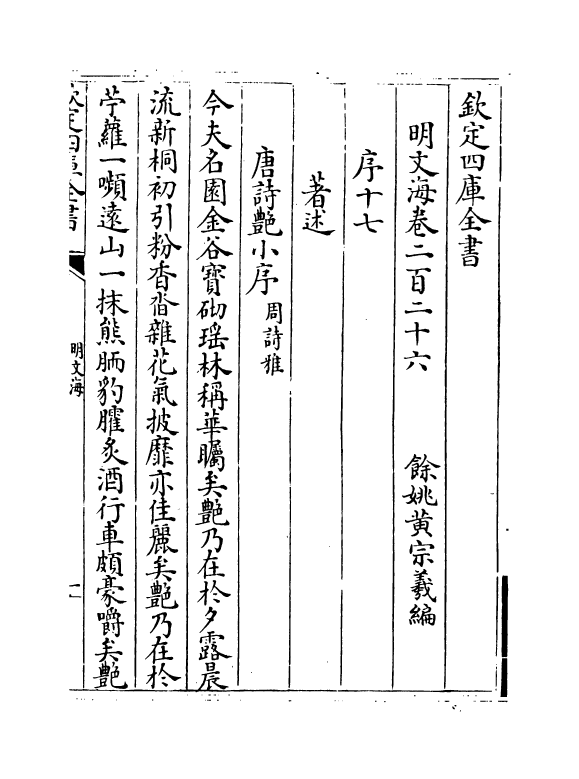 欽定四庫全書
明文海卷二百二十六 餘姚黄宗羲編
序十七
著述
唐詩艷小序 周詩雅
今夫名園金谷寳砌瑶林稱華矚矣艷乃在於夕露晨
流新桐初引粉香㳫雜花氣披靡亦佳麗矣艷乃在於
苧蘿一嚬遠山一抹熊胹豹臛炙酒行車頗豪嚼矣艷
欽定四庫全書
明文海
一